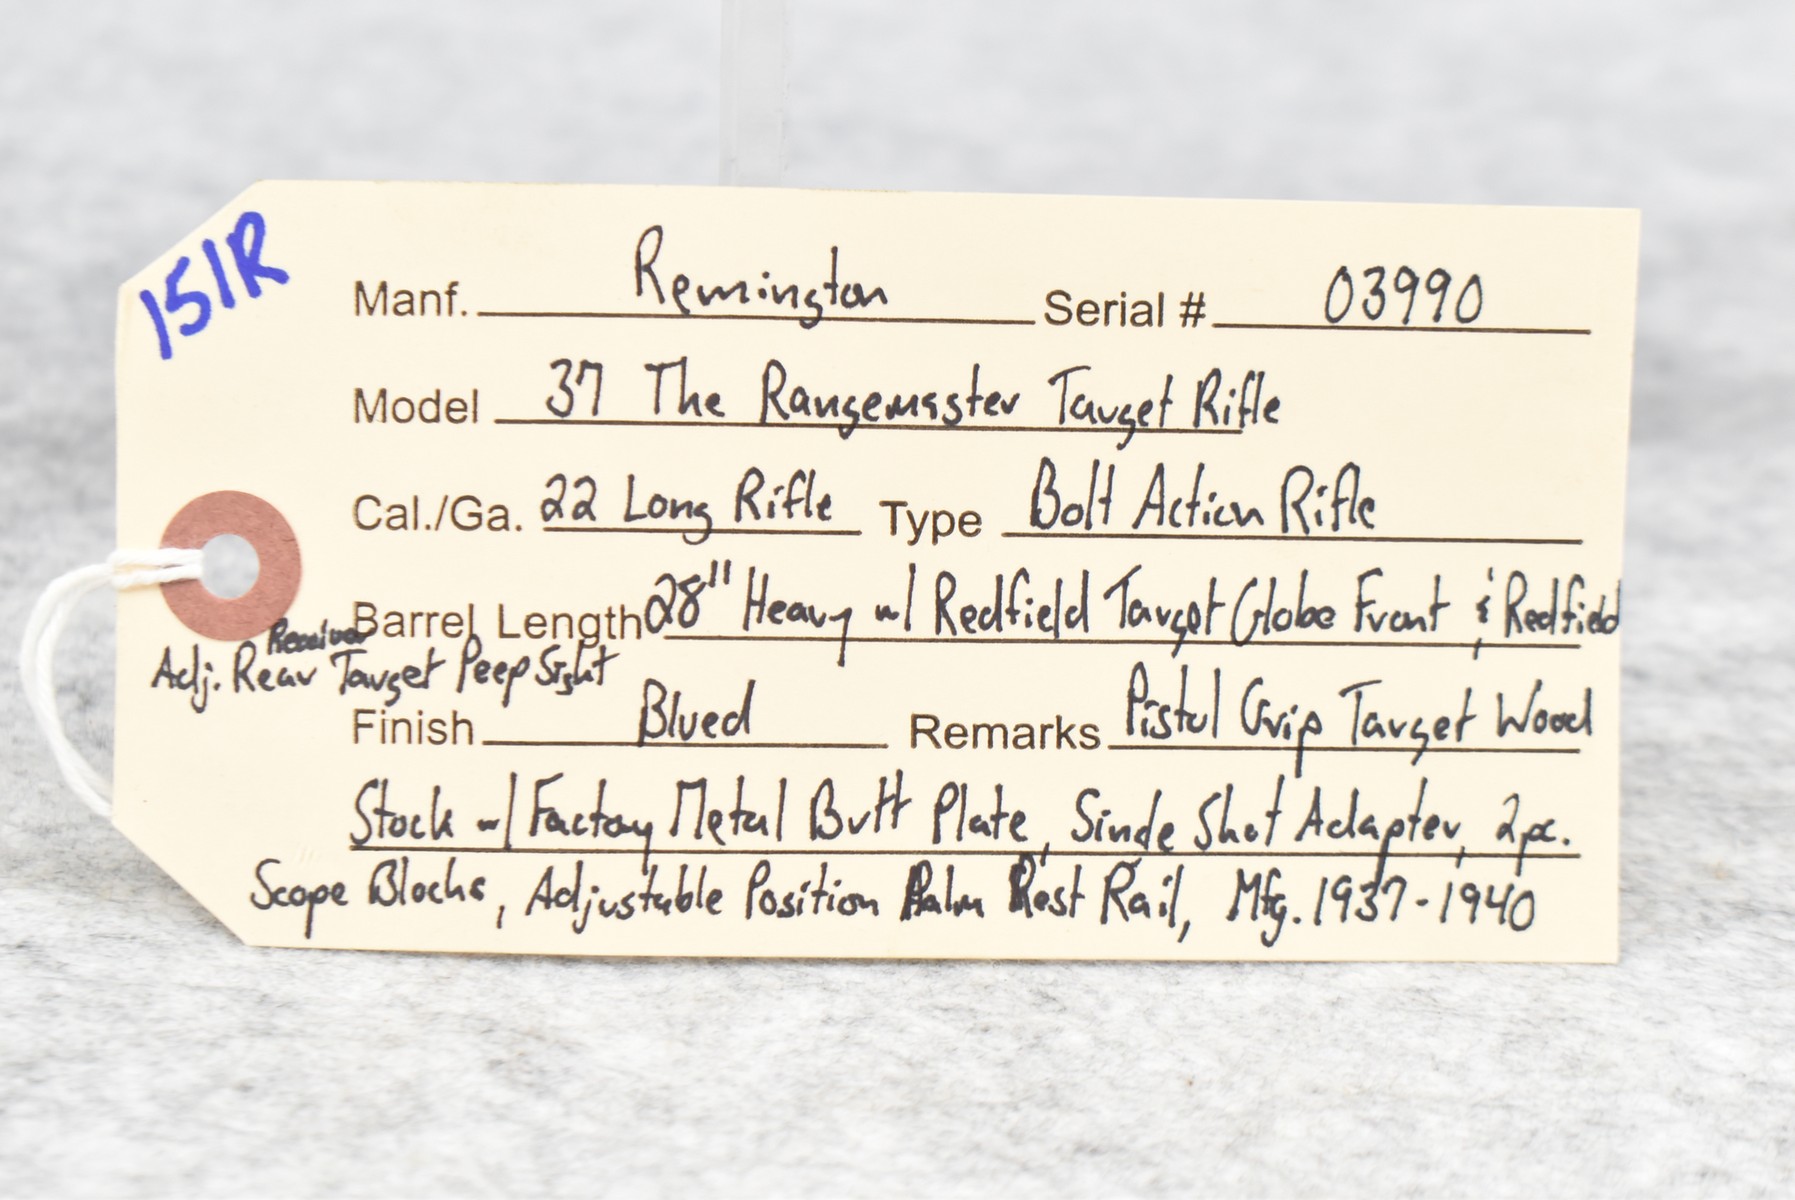 151R
Manf. Remington Serial # 03990
Model 37 The Rangemaster Target Rifle
Cal./Ga. 22 Long Rifle Type Bolt Action Rifle
Barrel Length 28" Heavy w/ Redfield Target Globe Front & Redfield
Receiver
Adj. Rear Target Peep Sight
Finish Blued Remarks Pistol Grip Target Wood
Stock w/ Factory Metal Butt Plate, Single Shot Adapter, 2pc.
Scope Blocks, Adjustable Position Palm Rest Rail, Mfg. 1937-1940